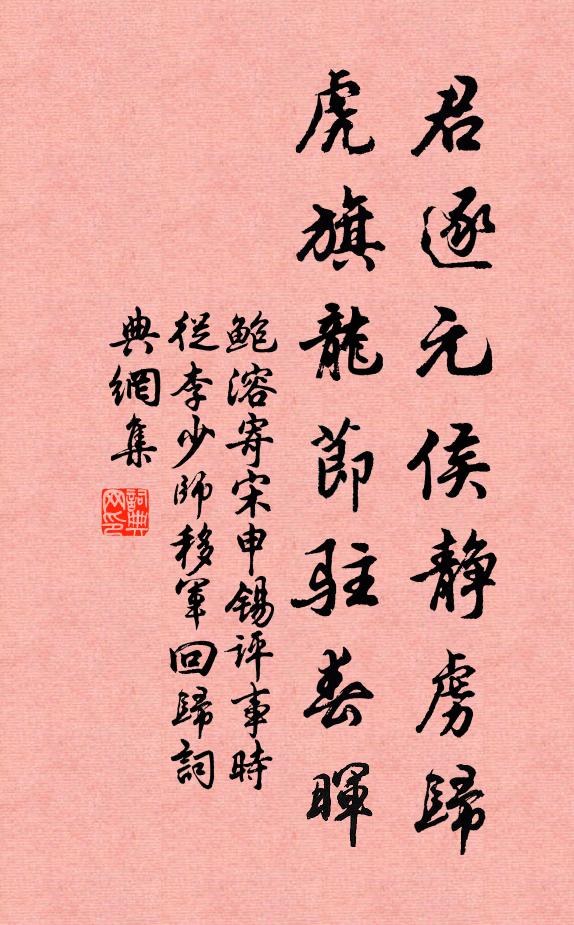 君逐元侯静虏歸
虎旗龍節駐春暉
鮑溶寄宋申錫評事時
從李少師移軍回歸詞
典網集
詞典
网印